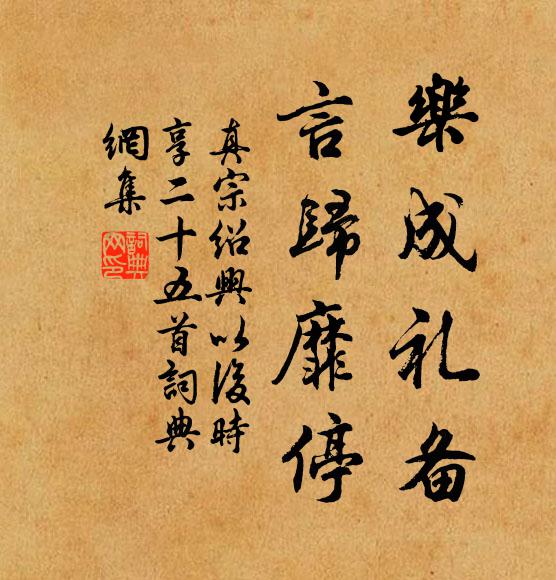 樂成礼备
言歸靡停
真宗紹興以後時
享二十五首詞典
網集
詞典
网印